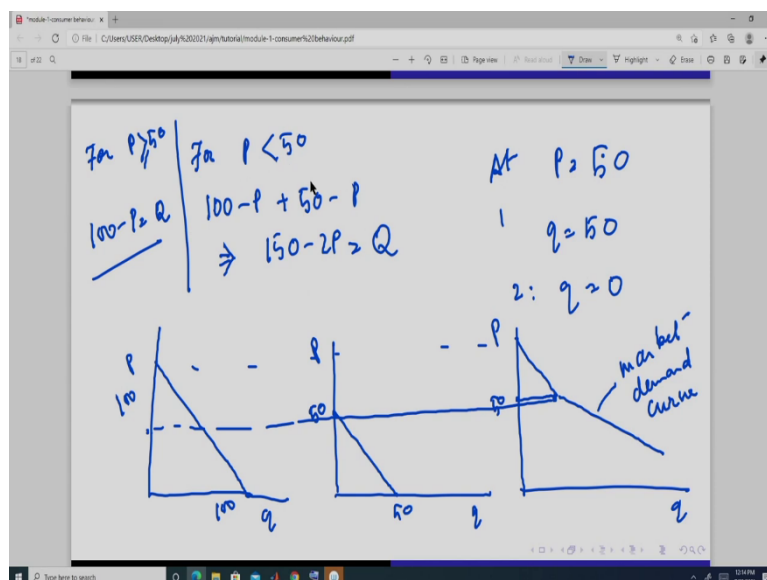 *module-1-consumer behaviou
File | C:/Users/USER/Desktop/july%202021/ajm/tutorial/module-1-consumer%20behaviour.pdf
18 of 22
Page view | Read aloud | Draw Highlight Erase
For P≥50
100-P=Q
For P<50
100-P+50-P
⇒ 150-2P=Q
At P=50
1 q=50
2: q=0
P
100
100 q
P
50
50 q
P
50
q
market
demand
curve
Type here to search
12:14 PM